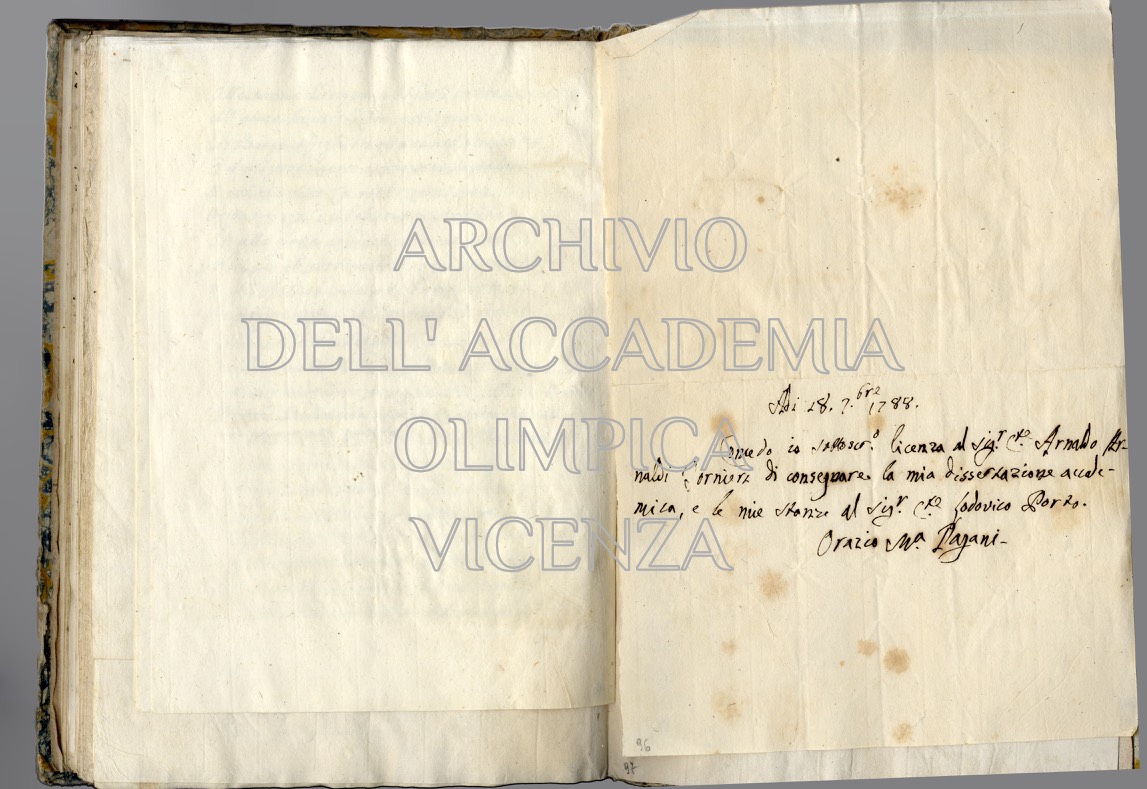 ARCHIVIO
DELL' ACCADEMIA
OLIMPICA
VICENZA
Adi 28. 7.bre 1788.
Concedo io sottoscr.o licenza al sig.r Co: Arnaldo Ar-
naldi Tornieri di consegnare la mia dissertazione accade-
mica, e le mie stanze al sig.r Co: Lodovico Porto.
Orazio Ma. Pagani-
96
97